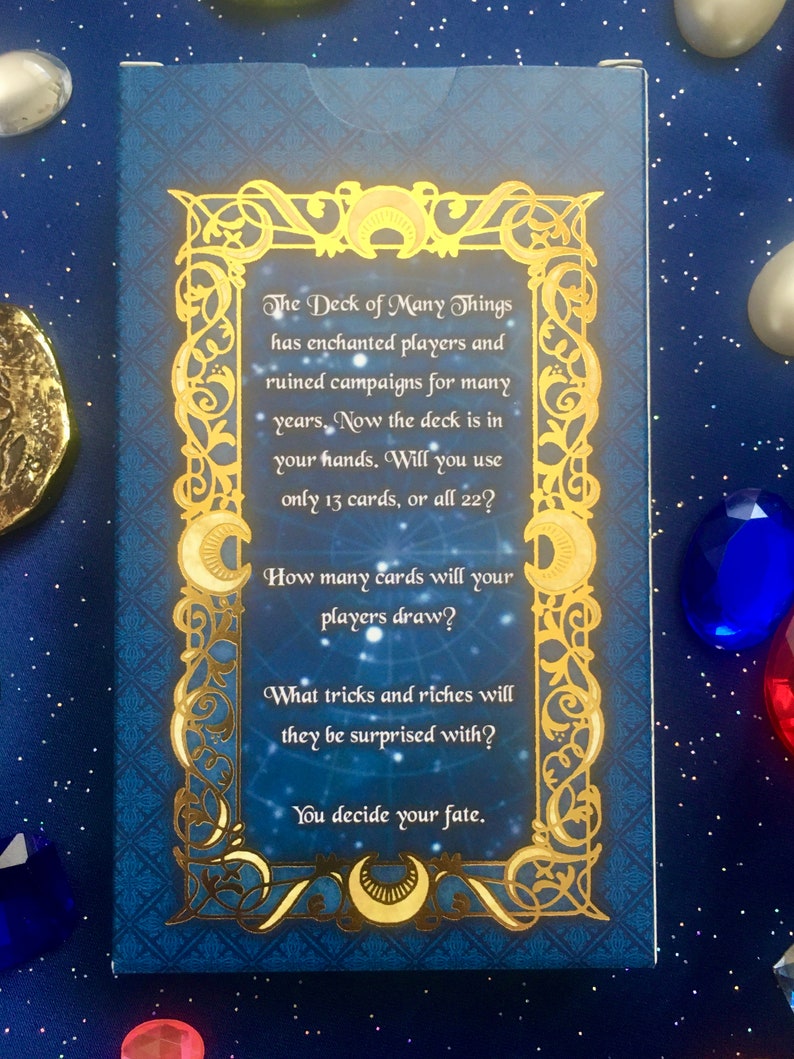 The Deck of Many Things
has enchanted players and
ruined campaigns for many
years. Now the deck is in
your hands. Will you use
only 13 cards, or all 22?
How many cards will your
players draw?
What tricks and riches will
they be surprised with?
You decide your fate.